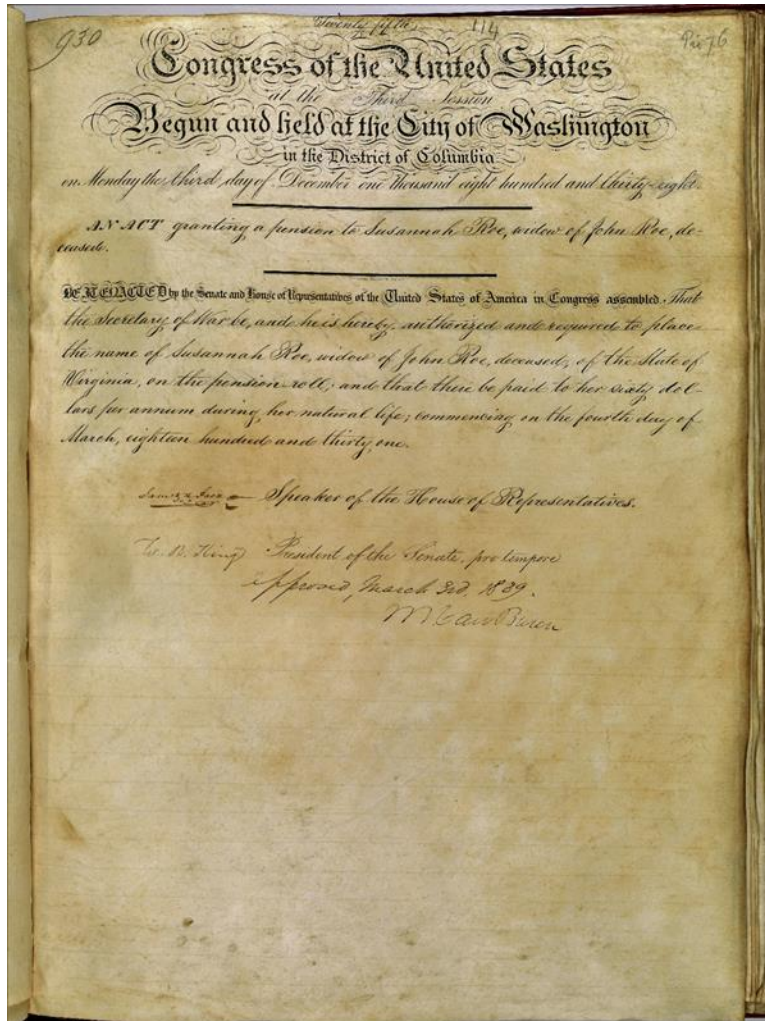 930
Seventy fifth
114
Pri 76
Congress of the United States
at the Third Session
Begun and held at the City of Washington
in the District of Columbia
on Monday the third day of December one thousand eight hundred and thirty-eight.
AN ACT granting a pension to Susannah Roe, widow of John Roe, de-
ceased.
BE IT ENACTED by the Senate and House of Representatives of the United States of America in Congress assembled. That
the Secretary of War be, and he is hereby, authorized and required to place
the name of Susannah Roe, widow of John Roe, deceased, of the State of
Virginia, on the pension-roll; and that there be paid to her sixty dol-
lars per annum during her natural life; commencing on the fourth day of
March, eighteen hundred and thirty one.
Speaker of the House of Representatives.
King President of the Senate, pro tempore
Approved, March 3rd, 1839.
M Van Buren